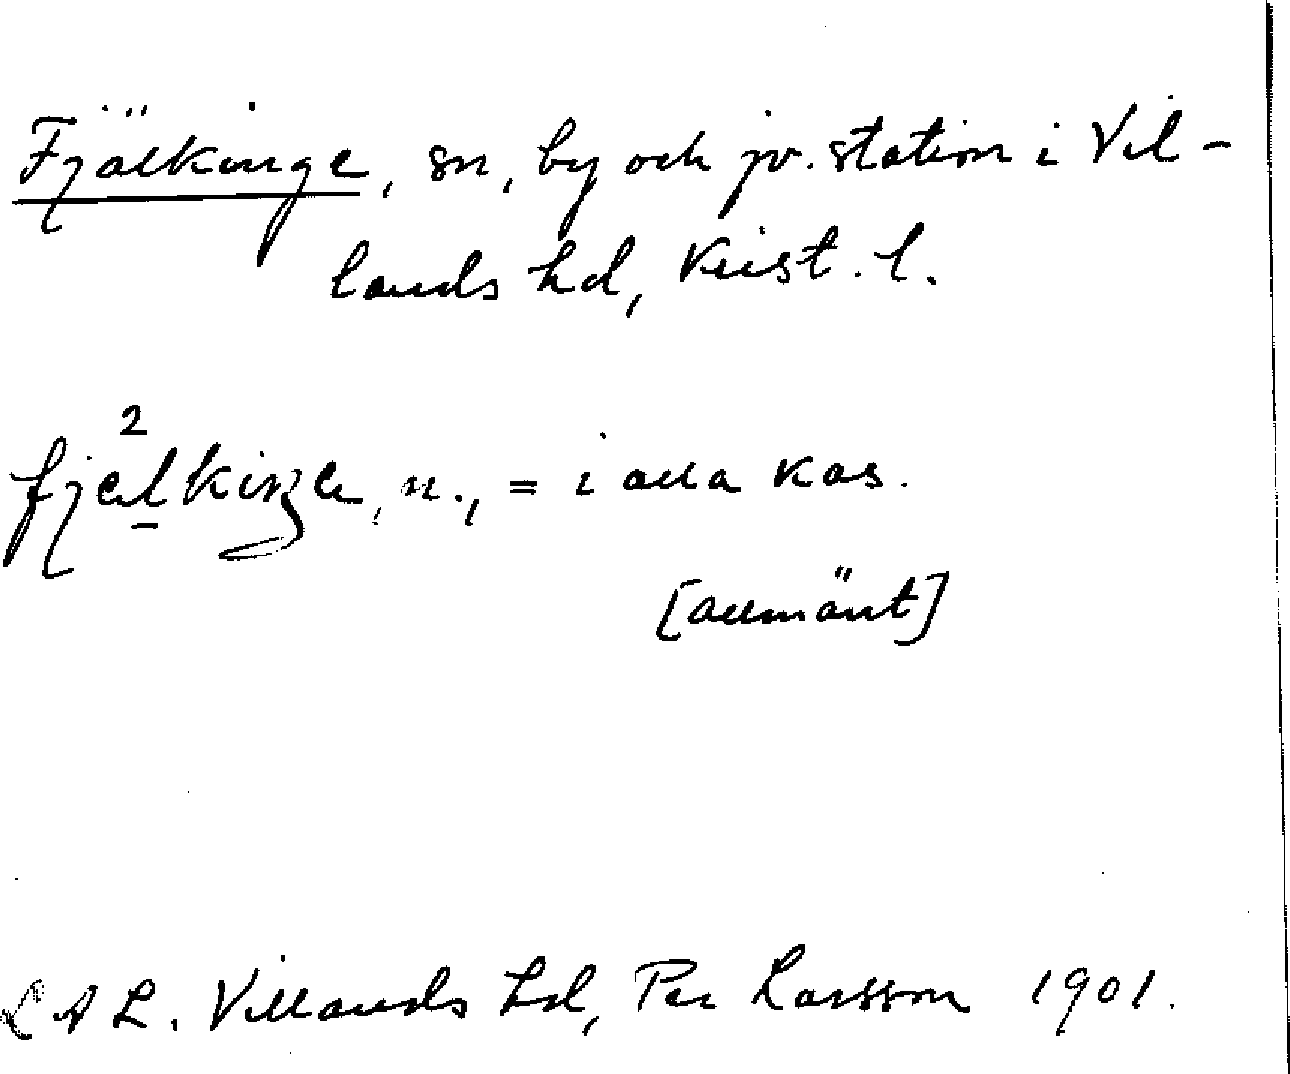 Fjälkinge, sn, by och jv. station i Vil-
lands hd, Krist. l.
2
fjælkiŋe, n., = i alla kas.
[allmänt]
LAL. Villands hd, Per Larsson 1901.